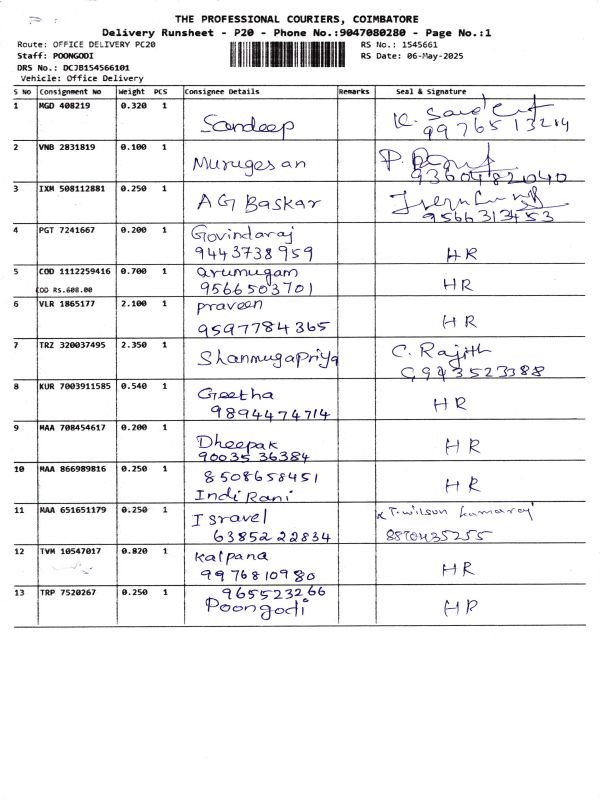 THE PROFESSIONAL COURIERS, COIMBATORE
Delivery Runsheet - P20 - Phone No.:9047080280 - Page No.:1
Route: OFFICE DELIVERY PC20 RS No.: 1545661
Staff: POONGODI RS Date: 06-May-2025
DRS No.: DCJB154566101
Vehicle: Office Delivery
S No Consignment No Weight PCS Consignee Details Remarks Seal & Signature
1 MGD 408219 0.320 1 Sandeep
9976513214
2 VNB 2831819 0.100 1 Murugesan
9360482040
3 IXM 508112881 0.250 1 AG Baskar
9566313453
4 PGT 7241667 0.200 1 Govindaraj
9443738959 HR
5 COD 1112259416 0.700 1 arumugam HR
COD Rs.608.00 9566503701
6 VLR 1865177 2.100 1 praveen HR
9597784365
7 TRZ 320037495 2.350 1 Shanmugapriya C. Rajith
9943523388
8 KUR 7003911585 0.540 1 Geetha HR
9894474714
9 MAA 708454617 0.200 1 Dheepak HR
9003536384
10 MAA 866989816 0.250 1 8508658451 HR
Indirani
11 MAA 651651179 0.250 1 Isravel T. Wilson Kamaraj
6385222834 8870435255
12 TVM 10547017 0.820 1 Kalpana HR
9976810980
13 TRP 7520267 0.250 1 965523266 HR
Poongodi